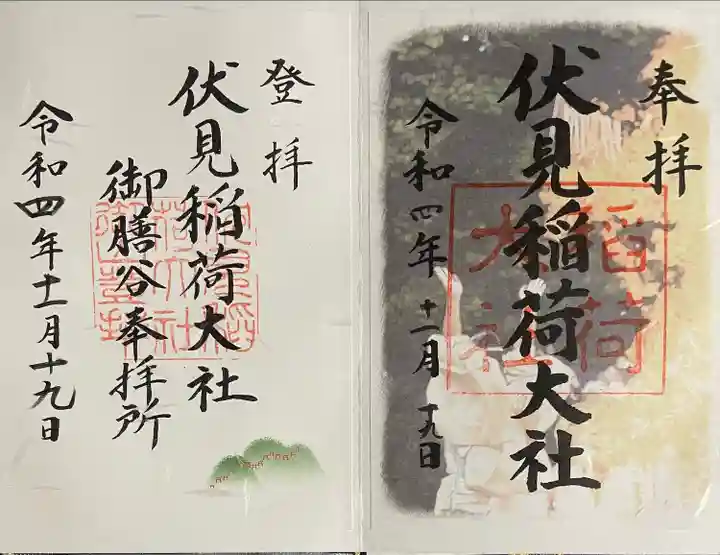 奉拝
伏見稲荷大社
稲荷
大社
令和四年十一月十九日
登拝
伏見稲荷大社
御膳谷奉拝所
令和四年十一月十九日